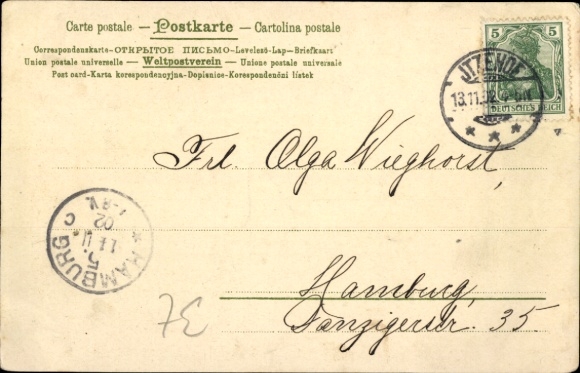 Carte postale – Postkarte – Cartolina postale
Correspondenskarte – ОТКРЫТОЕ ПИСЬМО – Levelező-Lap – Briefkaart
Union postale universelle – Weltpostverein – Unione postale universale
Post card – Karta korespondencyjna – Dopisnice – Korespondenční lístek
5 5
DEUTSCHES REICH
ITZEHOE
13.11.02
Frl. Olga Wieghorst,
HAMBURG
5
14.11.
02
C
Hamburg,
Danzigerstr. 35.
7E